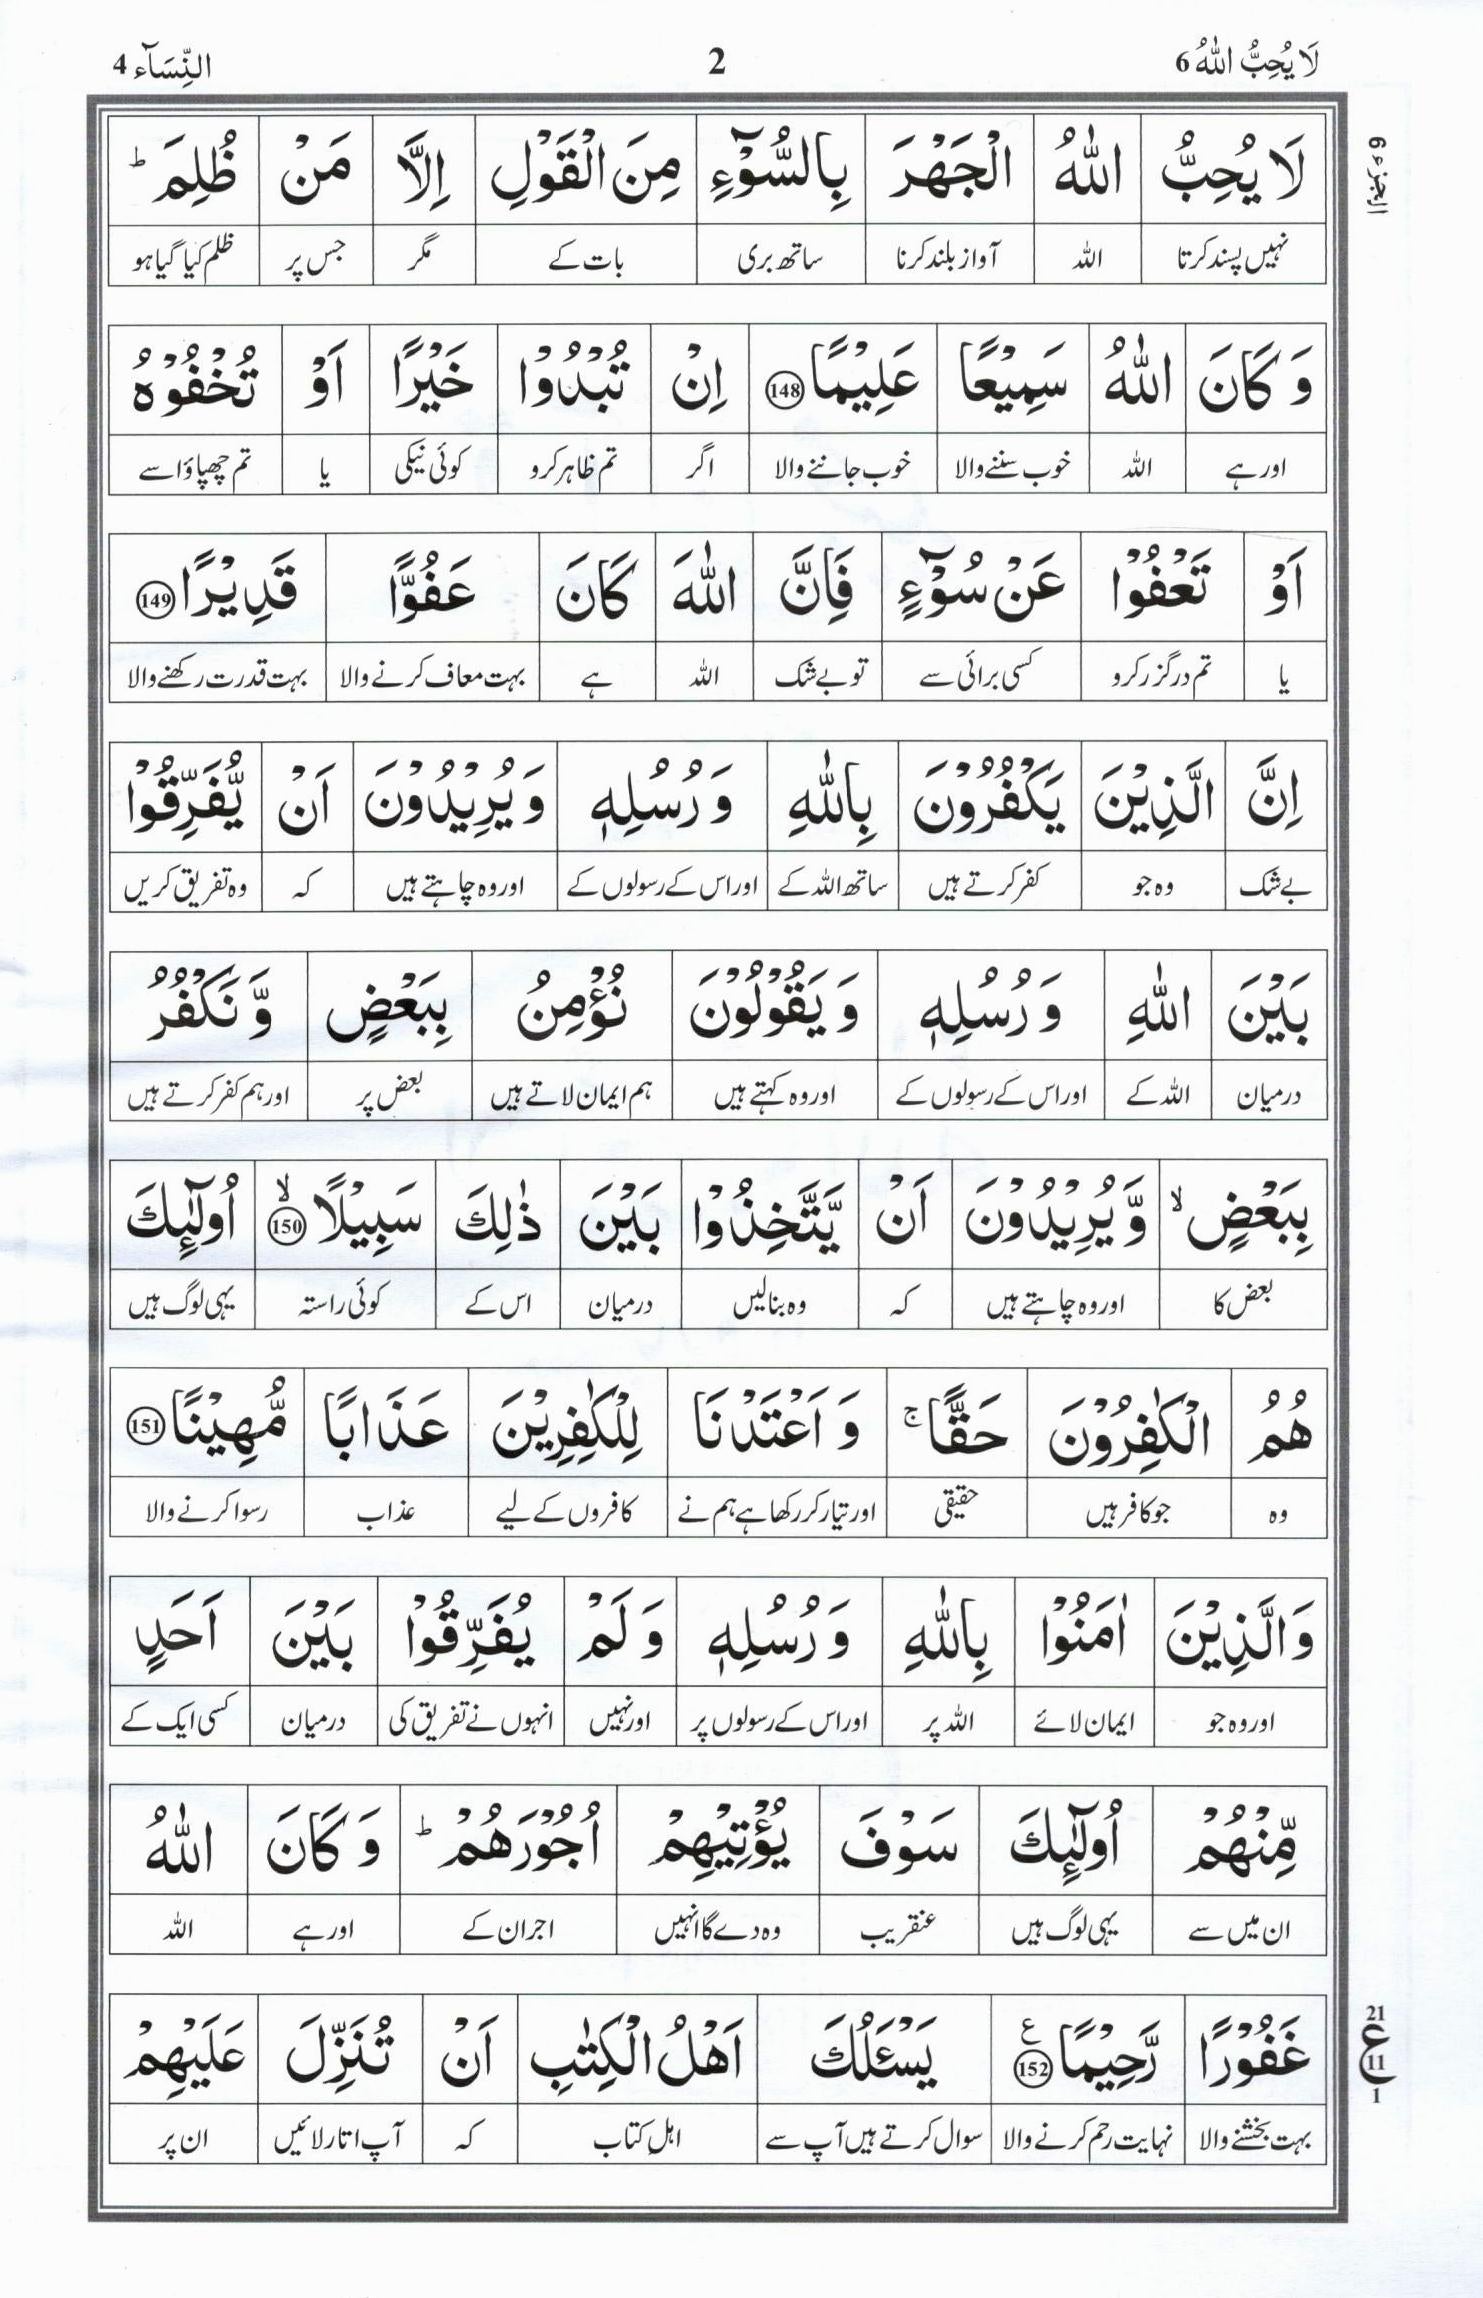 لَا يُحِبُّ اللّٰهُ 6 2 النِّسَآء 4
الجزء 6
لَا يُحِبُّ اللّٰهُ الْجَهْرَ بِالسُّوْٓءِ مِنَ الْقَوْلِ اِلَّا مَنْ ظُلِمَ ؕ
نہیں پسند کرتا اللہ آواز بلند کرنا ساتھ بری بات کے مگر جس پر ظلم کیا گیا ہو
وَ كَانَ اللّٰهُ سَمِيْعًا عَلِيْمًا 148 اِنْ تُبْدُوْا خَيْرًا اَوْ تُخْفُوْهُ
اور ہے اللہ خوب سننے والا خوب جاننے والا اگر تم ظاہر کرو کوئی نیکی یا تم چھپاؤ اسے
اَوْ تَعْفُوْا عَنْ سُوْٓءٍ فَاِنَّ اللّٰهَ كَانَ عَفُوًّا قَدِيْرًا 149
یا تم درگزر کرو کسی برائی سے تو بے شک اللہ ہے بہت معاف کرنے والا بہت قدرت رکھنے والا
اِنَّ الَّذِيْنَ يَكْفُرُوْنَ بِاللّٰهِ وَ رُسُلِهٖ وَ يُرِيْدُوْنَ اَنْ يُّفَرِّقُوْا
بے شک وہ جو کفر کرتے ہیں ساتھ اللہ کے اور اس کے رسولوں کے اور وہ چاہتے ہیں کہ وہ تفریق کریں
بَيْنَ اللّٰهِ وَ رُسُلِهٖ وَ يَقُوْلُوْنَ نُؤْمِنُ بِبَعْضٍ وَّ نَكْفُرُ
درمیان اللہ کے اور اس کے رسولوں کے اور وہ کہتے ہیں ہم ایمان لاتے ہیں بعض پر اور ہم کفر کرتے ہیں
بِبَعْضٍ ۙ وَّ يُرِيْدُوْنَ اَنْ يَّتَّخِذُوْا بَيْنَ ذٰلِكَ سَبِيْلًا ۙ 150 اُولٰٓئِكَ
بعض کا اور وہ چاہتے ہیں کہ وہ بنا لیں درمیان اس کے کوئی راستہ یہی لوگ ہیں
هُمُ الْكٰفِرُوْنَ حَقًّا ۚ وَ اَعْتَدْنَا لِلْكٰفِرِيْنَ عَذَابًا مُّهِيْنًا 151
وہ جو کافر ہیں حقیقی اور تیار کر رکھا ہے ہم نے کافروں کے لیے عذاب رسوا کرنے والا
وَ الَّذِيْنَ اٰمَنُوْا بِاللّٰهِ وَ رُسُلِهٖ وَ لَمْ يُفَرِّقُوْا بَيْنَ اَحَدٍ
اور وہ جو ایمان لائے اللہ پر اور اس کے رسولوں پر اور نہیں انہوں نے تفریق کی درمیان کسی ایک کے
مِّنْهُمْ اُولٰٓئِكَ سَوْفَ يُؤْتِيْهِمْ اُجُوْرَهُمْ ؕ وَ كَانَ اللّٰهُ
ان میں سے یہی لوگ ہیں عنقریب وہ دے گا انہیں اجر ان کے اور ہے اللہ
غَفُوْرًا رَّحِيْمًا ع 152 يَسْـَٔلُكَ اَهْلُ الْكِتٰبِ اَنْ تُنَزِّلَ عَلَيْهِمْ
بہت بخشنے والا نہایت رحم کرنے والا سوال کرتے ہیں آپ سے اہلِ کتاب کہ آپ اتار لائیں ان پر
21
ع 11
1